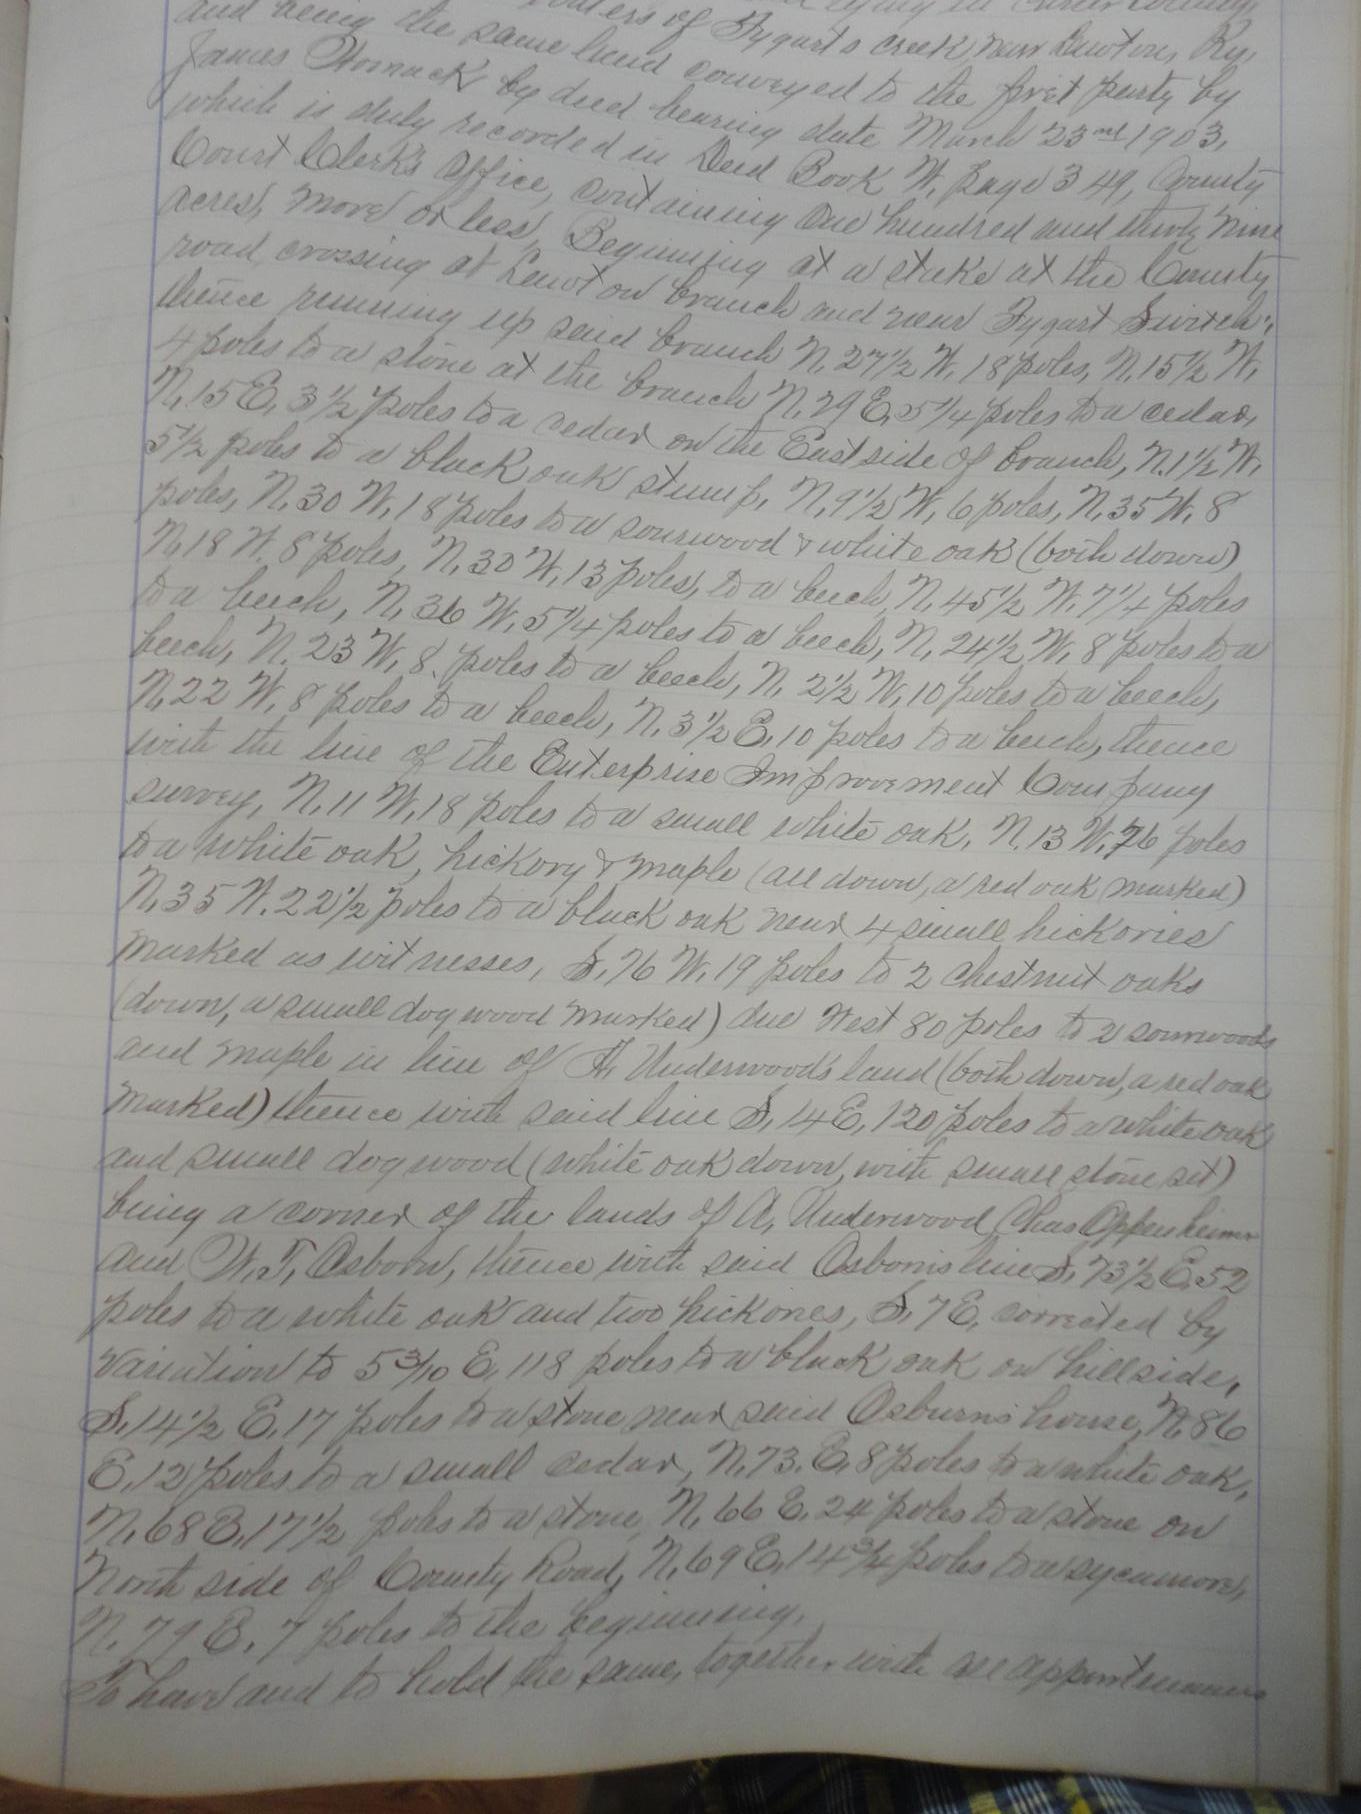 lying in Carter County,
and being the waters of Tygarts creek near Lawton, Ky,
the same land conveyed to the first party by
James Womack by deed bearing date March 23rd 1903,
which is duly recorded in Deed Book W, Page 349, County
Court Clerk's Office, containing One hundred and thirty nine
acres, more or less, Beginning at a stake at the County
road crossing at Lawton branch and near Tygart Switch;
thence running up said branch N. 27 1/2 W. 18 poles, N. 15 1/2 W,
4 poles to a stone at the branch N. 29 E, 5 1/4 poles to a cedar,
N. 15 E, 3 1/2 poles to a cedar on the East side of branch, N. 1 1/2 W,
5 1/2 poles to a black oak stump, N. 9 1/2 W, 6 poles, N. 35 W, 8
poles, N. 30 W, 18 poles to a sourwood & white oak (both down)
N. 18 W. 8 poles, N. 30 W, 13 poles, to a beech, N. 45 1/2 W. 7 1/4 poles
to a beech, N. 36 W. 5 1/4 poles to a beech, N. 24 1/2 W, 8 poles to a
beech, N. 23 W, 8 poles to a beech, N. 2 1/2 W, 10 poles to a beech,
N. 22 W, 8 poles to a beech, N. 3 1/2 E, 10 poles to a beech, thence
with the line of the Enterprise Improvement Company
survey, N. 11 W, 18 poles to a small white oak, N. 13 W, 76 poles
to a white oak, hickory & maple (all down, a red oak marked)
N. 35 W. 22 1/2 poles to a black oak near 4 small hickories
marked as witnesses, S. 76 W. 19 poles to 2 chestnut oaks
(down, a small dogwood marked) due West 80 poles to 2 sourwoods
and maple in line of A. Underwoods land (both down, a red oak
marked) thence with said line S. 14 E, 120 poles to a white oak
and small dogwood (white oak down, with small stone set)
being a corner of the lands of A, Underwood, Chas Oppenheimer
and W. T. Osborn, thence with said Osborns line S. 73 1/2 E. 52
poles to a white oak and two hickories, S. 7 E, corrected by
variation to 5 3/10 E, 118 poles to a black oak on hillside,
S. 14 1/2 E. 17 poles to a stone near said Osburns house, N. 86
E. 12 poles to a small cedar, N. 73. E, 8 poles to a white oak,
N. 68 E. 17 1/2 poles to a stone, N. 66 E. 24 poles to a stone on
North side of County Road, N. 69 E. 14 3/4 poles to a sycamore,
N. 79 E. 7 poles to the beginning.
To have and to hold the same, together with all appurtenances